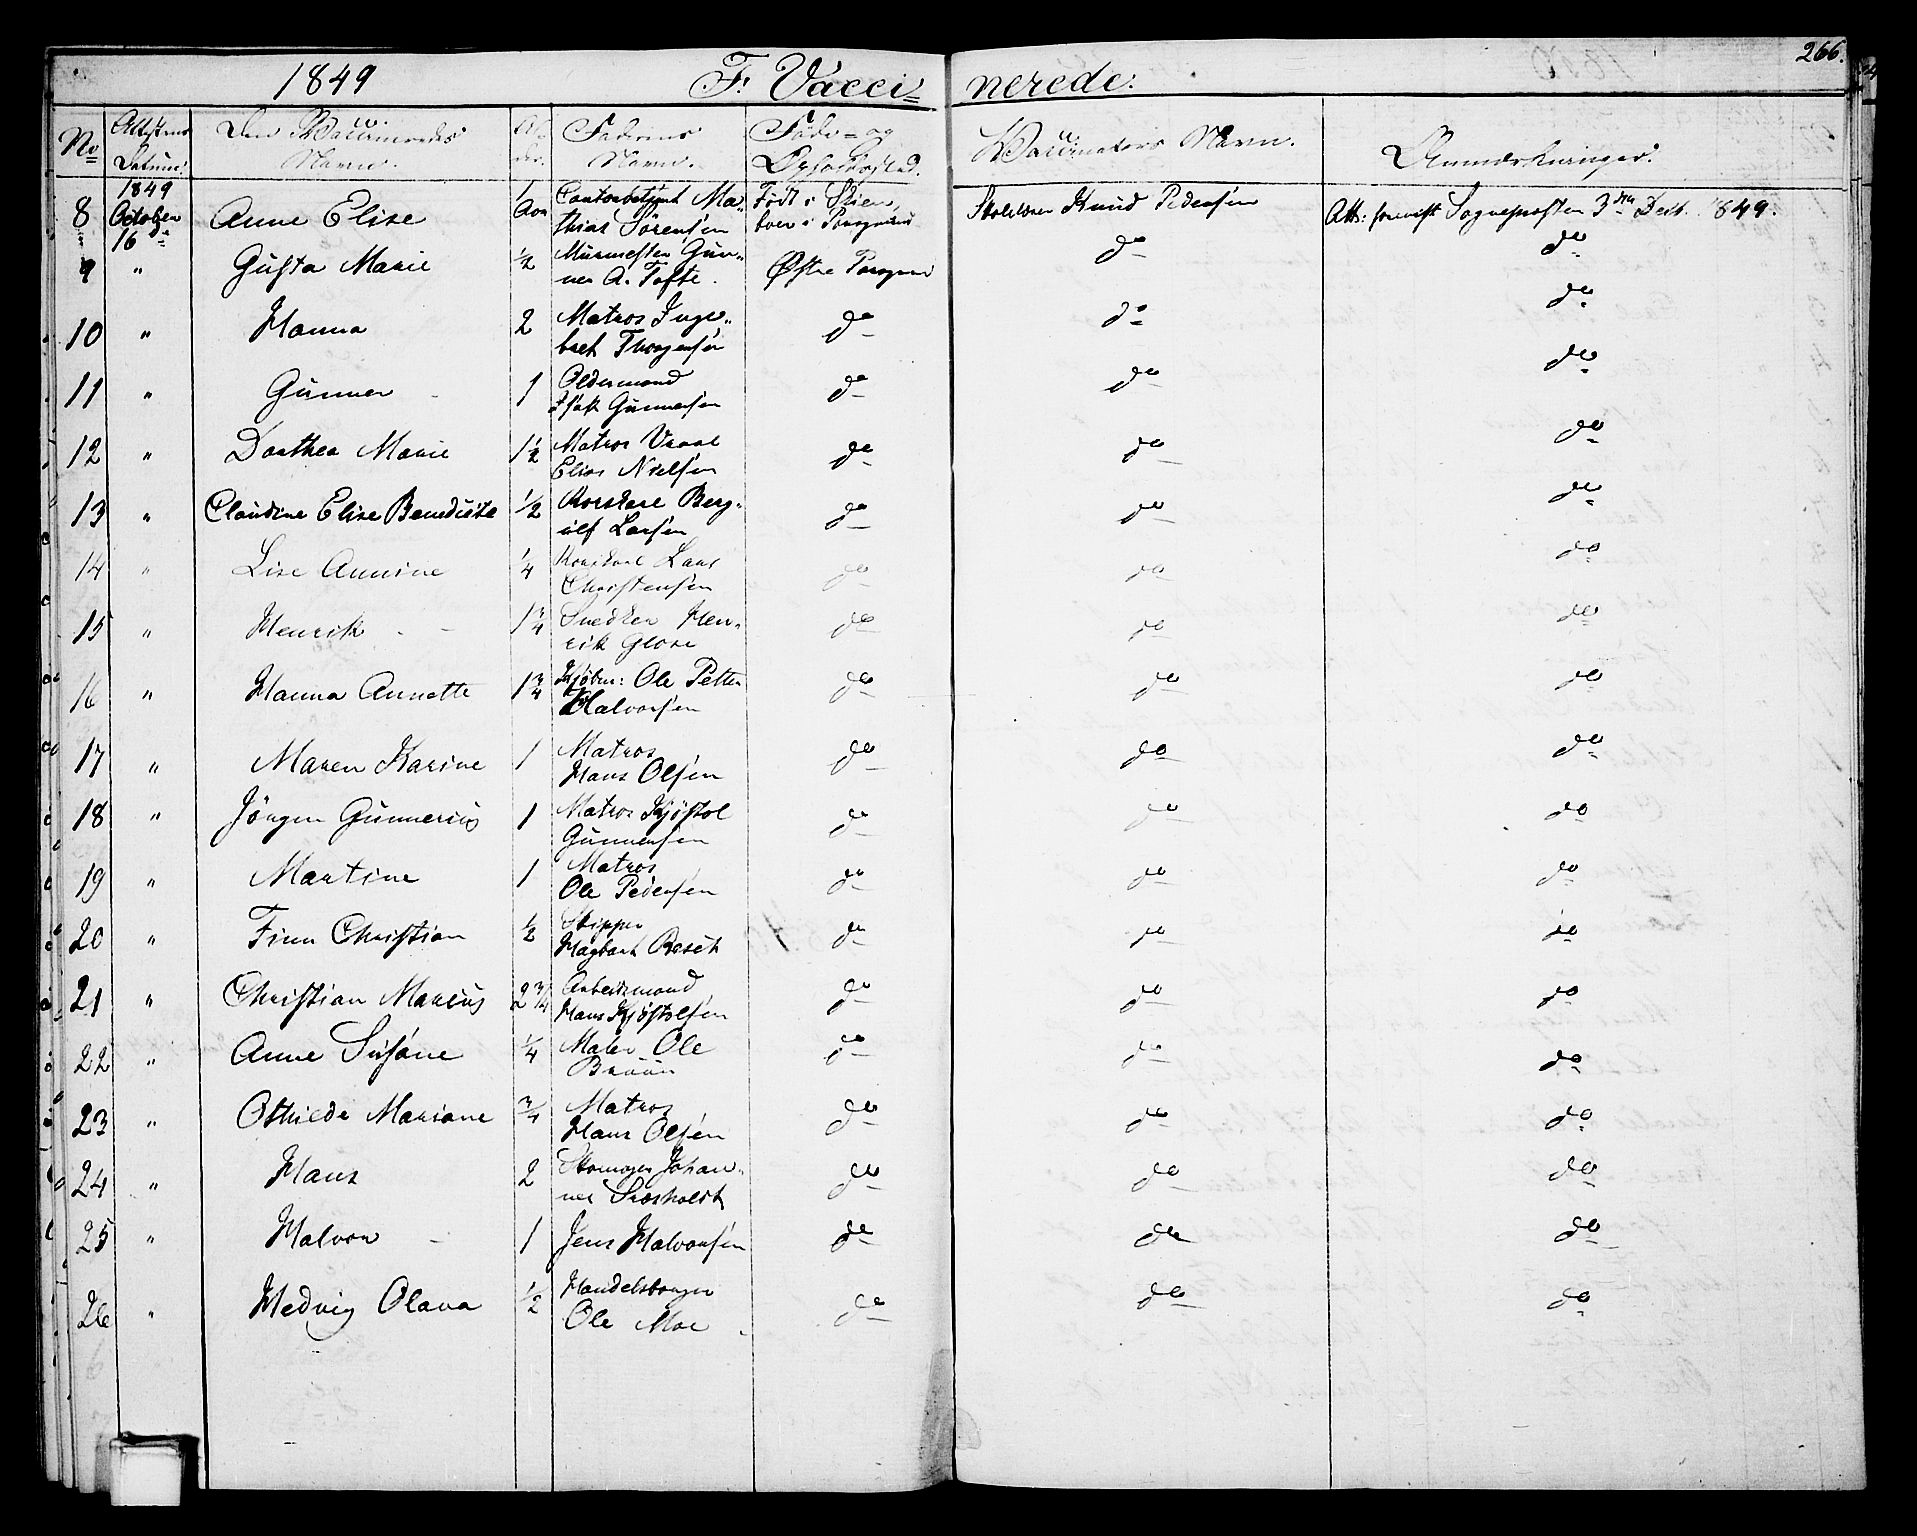 266.
1849 F. Vacci= nerede.
No Attestens Datum. Den Vaccineredes Navn. Al- der. Faderens Navn. Føde- og Opholdssted. Vaccinateurs Navn. Anmærkninger.
8 1849 October 16de Anne Elise 1 Aar Contorbetjent Ma- thias Sörensen Födt i Skien, boer i Porsgrund Skolelærer Knud Pedersen Att: forevist Sognepresten 3die Decb. 1849.
9 " Gusta Marie 1/2 Muurmester Gun- ner A. Tofte. Østre Porsgrund do do
10 " Hanna 2 Matros Inge- bret Thorgersen do do do
11 " Gunner 1 Oldermand Isak Gunnersen do do do
12 " Dorthea Marie 1 1/2 Matros Elias Nielsen do do do
13 " Claudine Elise Benedicte 1/2 Berg- ulf Larsen do do do
14 " Lise Annine 1/4 Lars Christensen do do do
15 " Henrik 1 3/4 Snedker Hen- rik Glose do do do
16 " Hanna Annette 1 3/4 Kjöbm: Ole Petter Halvorsen do do do
17 " Maren Karine 1 Matros Hans Olsen do do do
18 " Jörgen Gunnerius 1 Matros Kjöstol Gunnersen do do do
19 " Martine 1 Matros Ole Pedersen do do do
20 " Finn Christian 1/2 Skipper Hagbart Resch do do do
21 " Christian Marius 2 3/4 Arbeidsmand Hans Kjöstolsen do do do
22 " Anne Susane 1/4 Maler Ole Bruun do do do
23 " Othilde Mariane 3/4 Matros Hans Olsen do do do
24 " Hans 2 Skomager Johan- nes do do do
25 " Halvor 1 Jens Halvorsen do do do
26 " Hedvig Olava 1/2 Handelsborger Ole Moe do do do